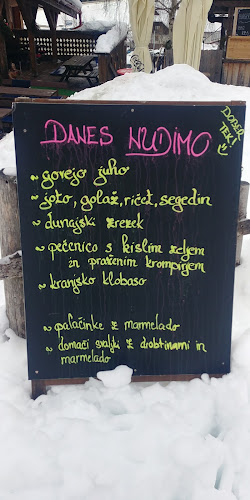 DANES NUDIMO
DOBER
TEK!
~ govejo juho
~ joto, golaž, ričet, segedin
~ dunajski zrezek
~ pečenico s kislim zeljem
in praženim krompirjem
~ kranjsko klobaso
~ palačinke z marmelado
~ domači svaljki z drobtinami in
marmelado